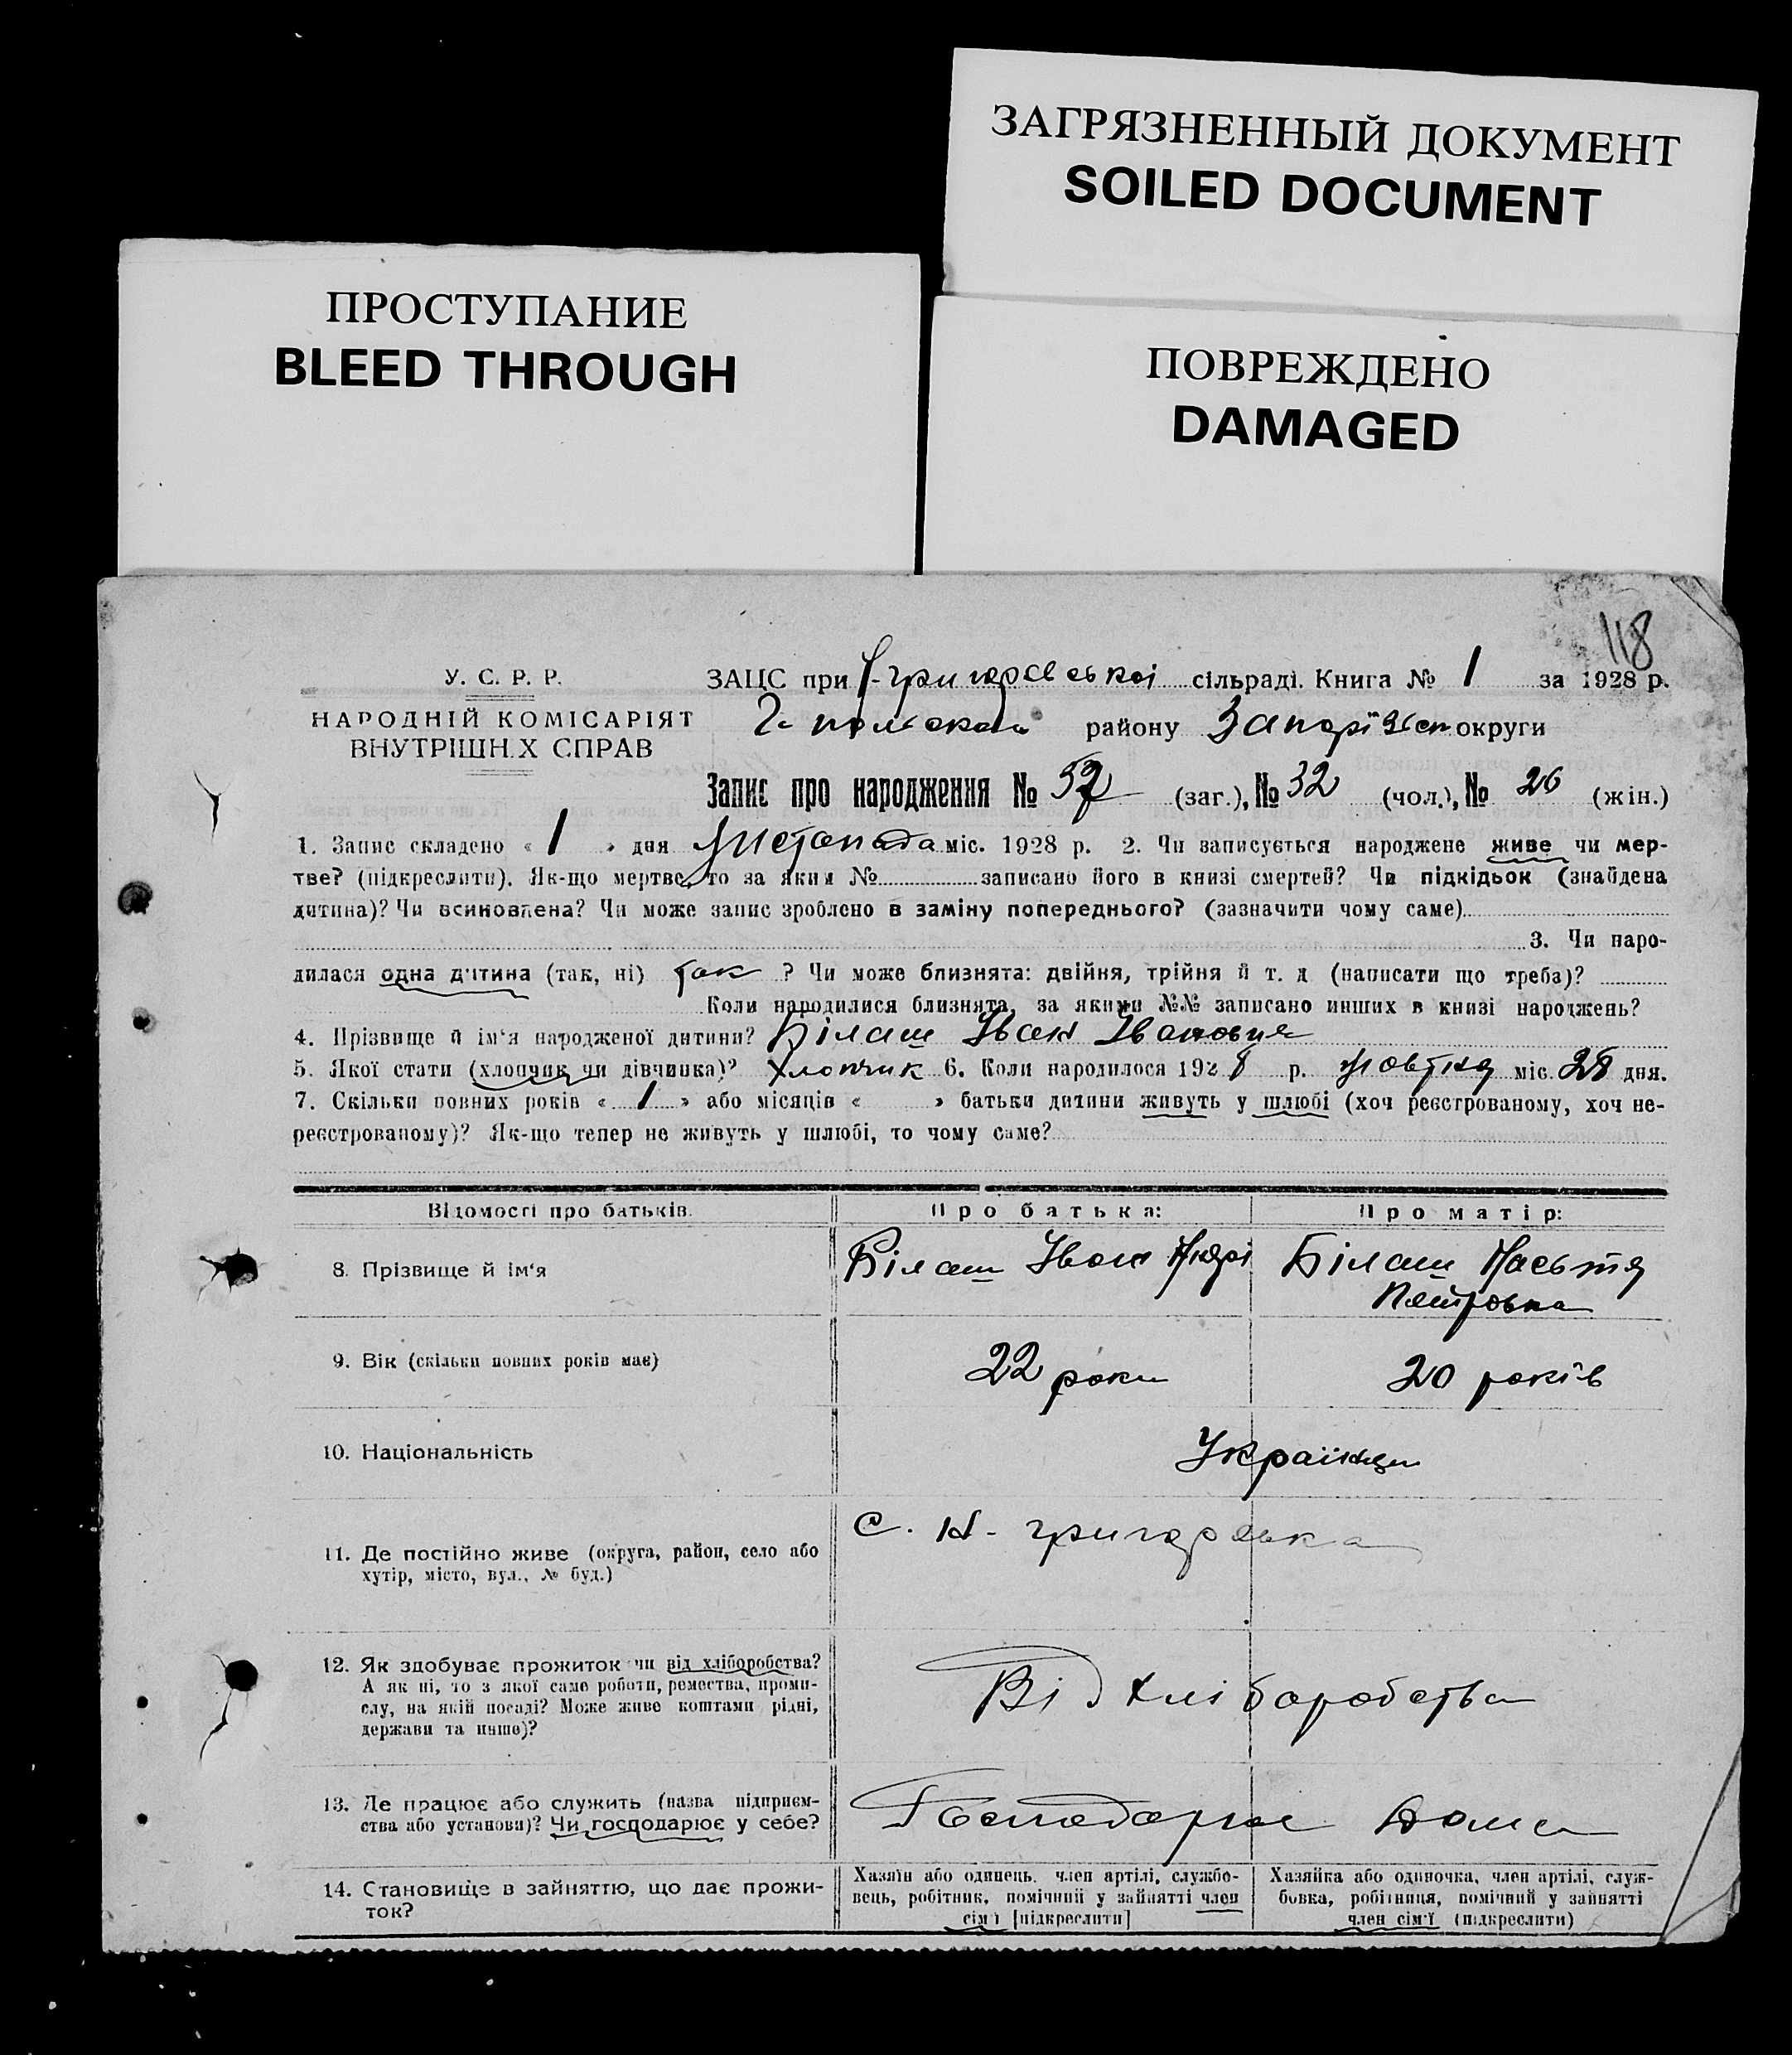 ЗАГРЯЗНЕННЫЙ ДОКУМЕНТ
SOILED DOCUMENT
ПРОСТУПАНИЕ
BLEED THROUGH
ПОВРЕЖДЕНО
DAMAGED
118
У. С. Р. Р.
НАРОДНІЙ КОМІСАРІЯТ
ВНУТРІШНІХ СПРАВ
ЗАЦС при григоровської сільраді. Книга № 1 за 1928 р.
району Запоріжськ округи
Запис про народження № 52 (заг.), № 32 (чол.), № 26 (жін.)
1. Запис складено « 1 » дня Листопада міс. 1928 р. 2. Чи записується народжене живе чи мер-
тве? (підкреслити). Як-що мертве, то за яким № записано його в книзі смертей? Чи підкідьок (знайдена
дитина)? Чи всиновлена? Чи може запис зроблено в заміну попереднього? (зазначити чому саме)
3. Чи наро-
дилася одна дитина (так, ні) так ? Чи може близнята: двійня, трійня й т. д. (написати що треба)?
Коли народилися близнята, за якими №№ записано инших в книзі народжень?
4. Прізвище й ім'я народженої дитини? Білаш Іван Іванович
5. Якої стати (хлопчик чи дівчинка)? Хлопчик 6. Коли народилося 1928 р. жовтня міс. 28 дня.
7. Скільки повних років « 1 » або місяців « » батьки дитини живуть у шлюбі (хоч реєстрованому, хоч не-
реєстрованому)? Як-що тепер не живуть у шлюбі, то чому саме?
Відомості про батьків. Про батька: Про матір:
8. Прізвище й ім'я Білаш Іван Андрі Білаш Насьтя
Петровна
9. Вік (скільки повних років має) 22 роки 20 років
10. Національність Українци
11. Де постійно живе (округа, район, село або
хутір, місто, вул., № буд.) С. Н-григоровка
12. Як здобуває прожиток чи від хліборобства?
А як ні, то з якої саме роботи, ремества, проми-
слу, на якій посаді? Може живе коштами рідні,
держави та инше)? Від хліборобства
13. Де працює або служить (назва підприєм-
ства або установи)? Чи господарює у себе? Господарює дома
14. Становище в зайняттю, що дає прожи-
ток?
Хазяїн або одинець, член артілі, службо-
вець, робітник, помічний у зайнятті член
сім'ї [підкреслити]
Хазяйка або одиночка, член артілі, служ-
бовка, робітниця, помічний у зайнятті
член сім'ї (підкреслити)